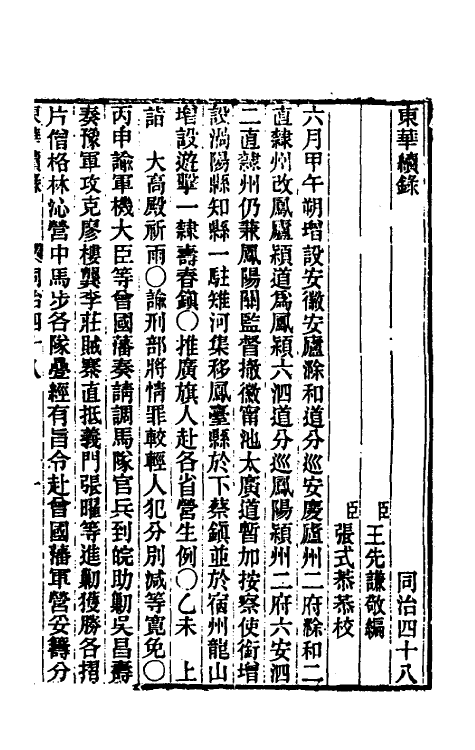 東華續錄 同治四十八
臣王先謙敬編
臣張式恭恭校
六月甲午朔增設安徽安廬滁和道分巡安慶廬州二府滁和二
直隸州改鳳廬潁道爲鳳潁六泗道分巡鳳陽潁州二府六安泗
二直隸州仍兼鳳陽關監督撤徽甯池太廣道暫加按察使銜增
設渦陽縣知縣一駐雉河集移鳳臺縣於下蔡鎮並於宿州龍山
增設遊擊一隸壽春鎮〇推廣旗人赴各省營生例〇乙未 上
詣 大高殿祈雨〇諭刑部將情罪較輕人犯分別減等寬免〇
丙申諭軍機大臣等曾國藩奏請調馬隊官兵到皖助勦吳昌壽
奏豫軍攻克廖樓龔李莊賊寨直抵義門張曜等進勦獲勝各摺
片僧格林沁營中馬步各隊疊經有旨令赴曾國藩軍營妥籌分
東華續錄 同治四十八 一